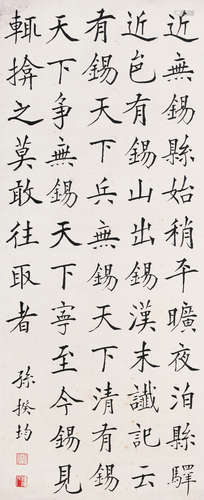 近無錫縣始稍平曠夜泊縣驛
近邑有錫山出錫漢末讖記云
有錫天下兵無錫天下清有錫
天下爭無錫天下寧至今錫見
輒揜之莫敢往取者
孫揆均